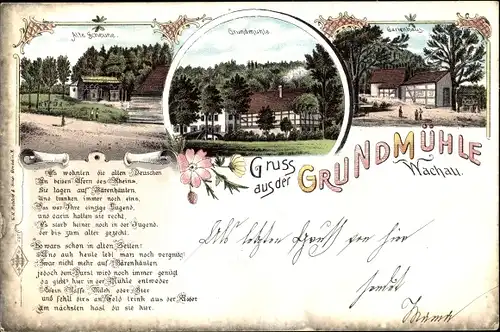 Alte Scheune.
Grundmühle
Gartenhaus
Gruss
aus der GRUNDMÜHLE
Wachau.
Es wohnten die alten Deutschen
An beiden Ufern des Rheins,
Sie lagen auf Bärenhäuten
Und tranken immer noch eins.
Das war Ihre einzige Tugend,
und darin hatten sie recht,
Es starb keiner noch in der Jugend,
der bis zum alter gezecht.
So wars schon in alten Zeiten:
Uns auch heute lebt man noch vergnügt
Zwar nicht mehr auf Bärenhäuten
jedoch den Durst wird noch immer genügt
da giebt's hier in der Mühle entweder
Wein Kaffe Milch oder Bier
und fehlt dirs an Geld trink aus der Röder
Am nächsten hast du sie hier.
Als letzten Gruß von hier
sendet